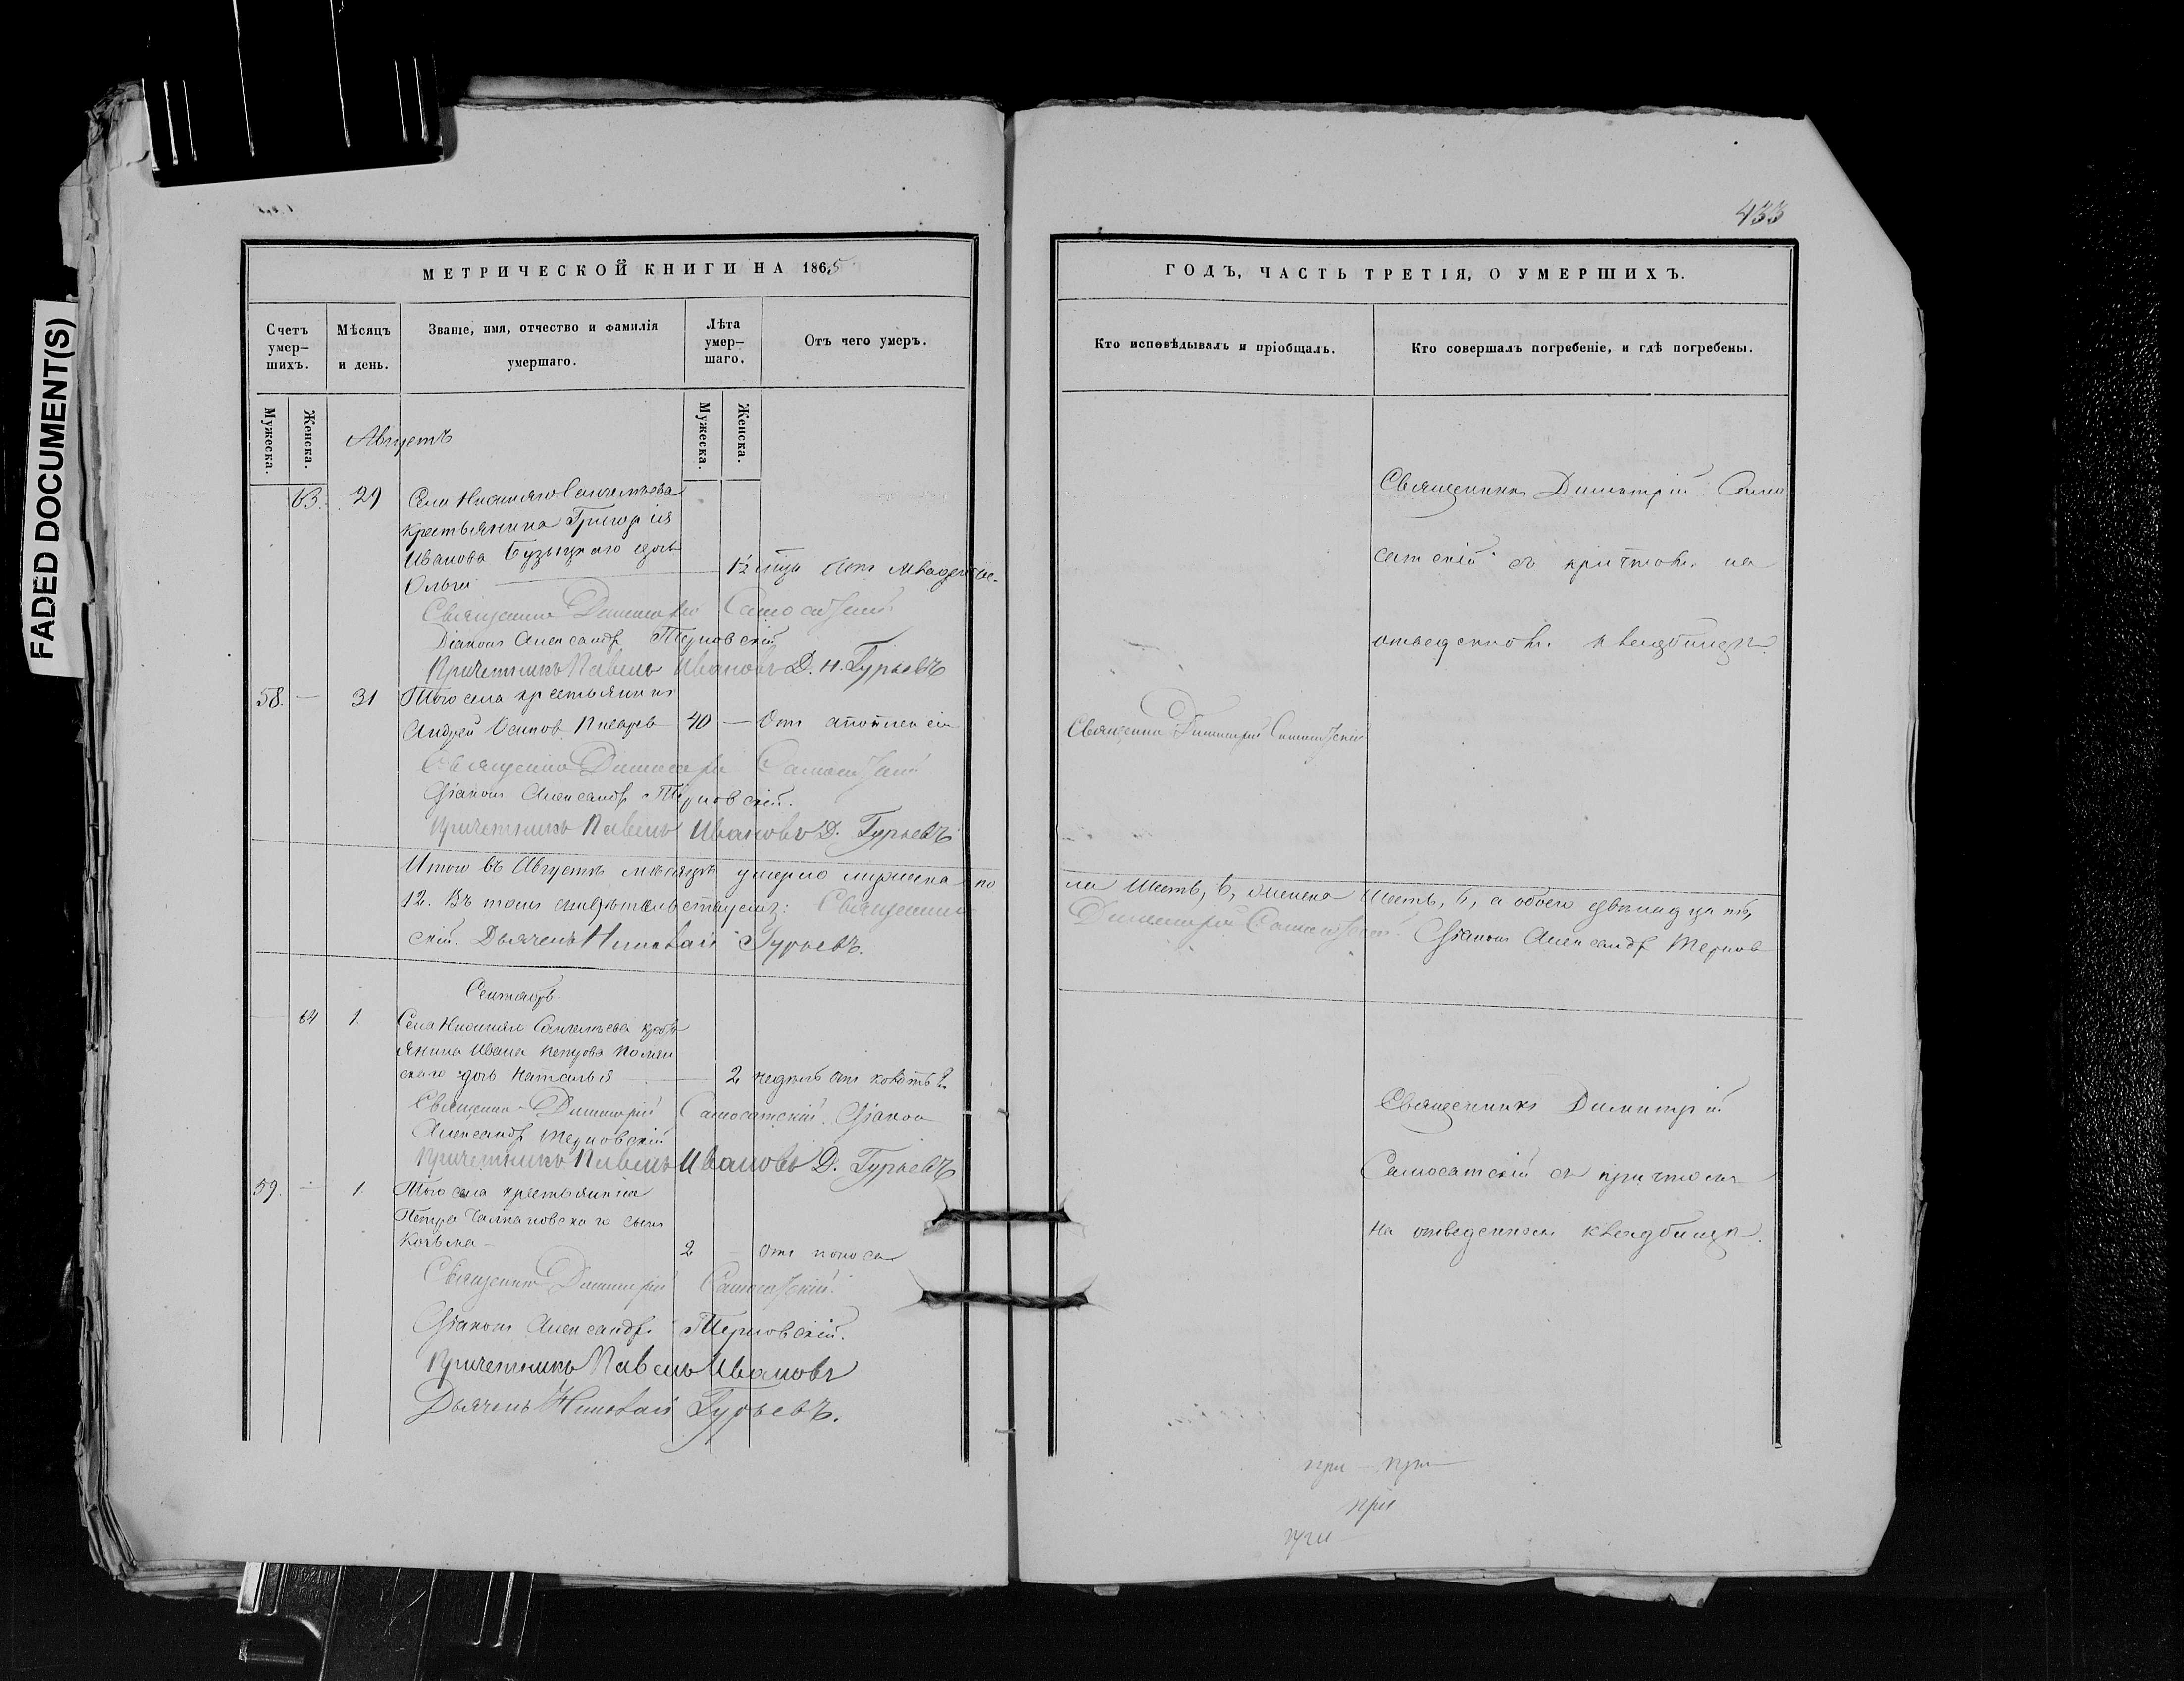 FADED DOCUMENT(S)
433
МЕТРИЧЕСКОЙ КНИГИ НА 1865
Счетъ умер-шихъ.
Мѣсяцъ и день.
Званіе, имя, отчество и фамилія умершаго.
Лѣта умер-шаго.
Отъ чего умеръ.
Мужеска.
Женска.
Мужеска.
Женска.
Августъ
63. 29 Села Нижняго
крестьянина Григорія
Иванова Бузыцкаго дочь
Ольга — 1½
Священникъ Димитрій Самосатскій
Діаконъ Александръ Терновскій
Причетникъ Павелъ Ивановъ Д. Н. Гурьевъ
58. — 31 Того села крестьянинъ
Андрей Осиповъ 40 — Отъ
Священникъ Димитрій Самосатскій
Діаконъ Александръ Терновскій.
Причетникъ Павелъ Ивановъ Д. Гурьевъ
Итого въ Августѣ мѣсяцѣ умерло мужеска по
12. Въ томъ свидѣтельствуемъ: Священникъ
скій. Дьячекъ Николай Гурьевъ.
Сентябрь.
64 1. Села Нижняго крсть
янина Ивана Петрова
скаго дочь Наталья — 2 недѣль отъ
Священникъ Димитрій Самосатскій. Діаконъ
Александръ Терновскій
Причетникъ Павелъ Ивановъ Д. Гурьевъ
59. — 1. Того села крестьянина
Петра сынъ
Козьма — 2 — Отъ поноса
Священникъ Димитрій Самосатскій.
Діаконъ Александръ Терновскій.
Причетникъ Павелъ Ивановъ
Дьячекъ Николай Гурьевъ.
ГОДЪ, ЧАСТЬ ТРЕТІЯ, О УМЕРШИХЪ.
Кто исповѣдывалъ и пріобщалъ.
Кто совершалъ погребеніе, и гдѣ погребены.
Священникъ Димитрій Само
сатскій съ причтомъ на
отведенномъ кладбищѣ.
Священникъ Димитрій Самосатскій
ла шесть, 6, женска шесть, 6, а обоего двѣнадцать,
Димитрій Самосатскій. Діаконъ Александръ Тернов
Священникъ Димитрій
Самосатскій съ причтомъ
на отведенномъ кладбищѣ.
при — при
при
при